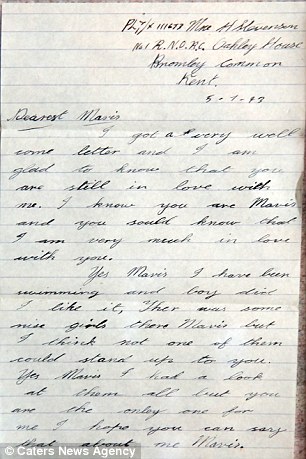 PLY/X 111673 Mne H Stevenson
No 1 R.N.O.R.C. Oakley House
Bromley Common
Kent.
5-7-47
Dearest Mavis
I got a very well
come letter and I am
glad to know that you
are still in love with
me. I know you are Mavis
and you sould know that
I am very much in love
with you.
Yes Mavis I have been
swimming and boy did
I like it, Ther was some
nise girls there Mavis but
I think not one of them
could stand up to you.
Yes Mavis I had a look
at them all but you
are the onley one for
me I hope you can say
that about me Mavis.
© Caters News Agency